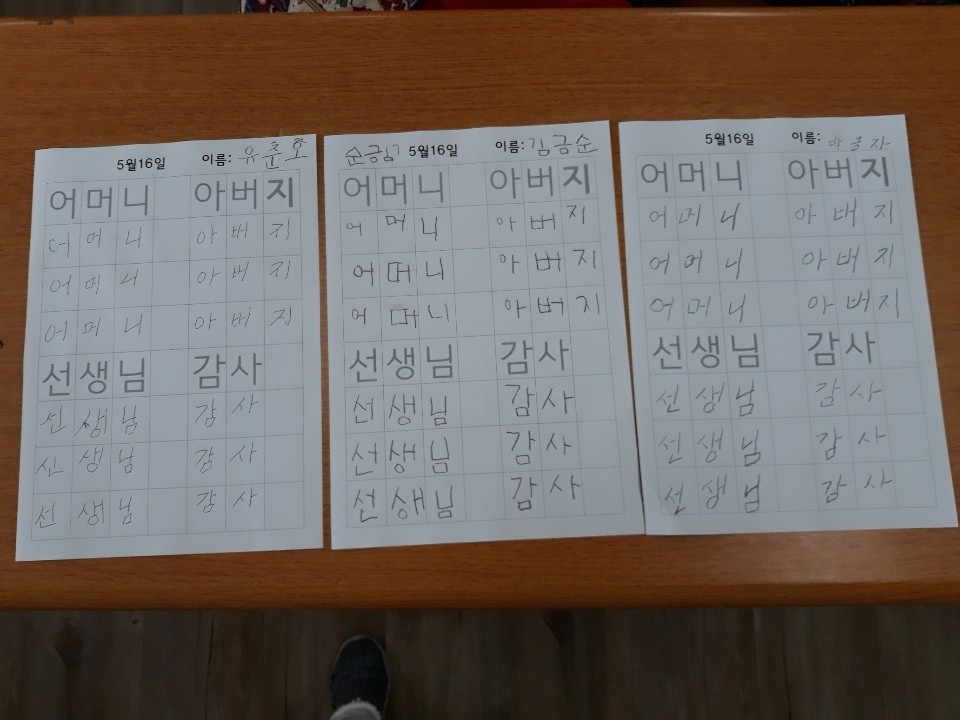 5월16일 이름: 유춘호
어머니 아버지
어머니 아버지
어머니 아버지
어머니 아버지
선생님 감사
선생님 감사
선생님 감사
선생님 감사
순금김 5월16일 이름: 김금순
어머니 아버지
어머니 아버지
어머니 아버지
어머니 아버지
선생님 감사
선생님 감사
선생님 감사
선생님 감사
5월16일 이름:
어머니 아버지
어머니 아버지
어머니 아버지
어머니 아버지
선생님 감사
선생님 감사
선생님 감사
선생님 감사